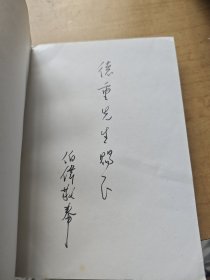 德重先生賜正
伯偉敬奉